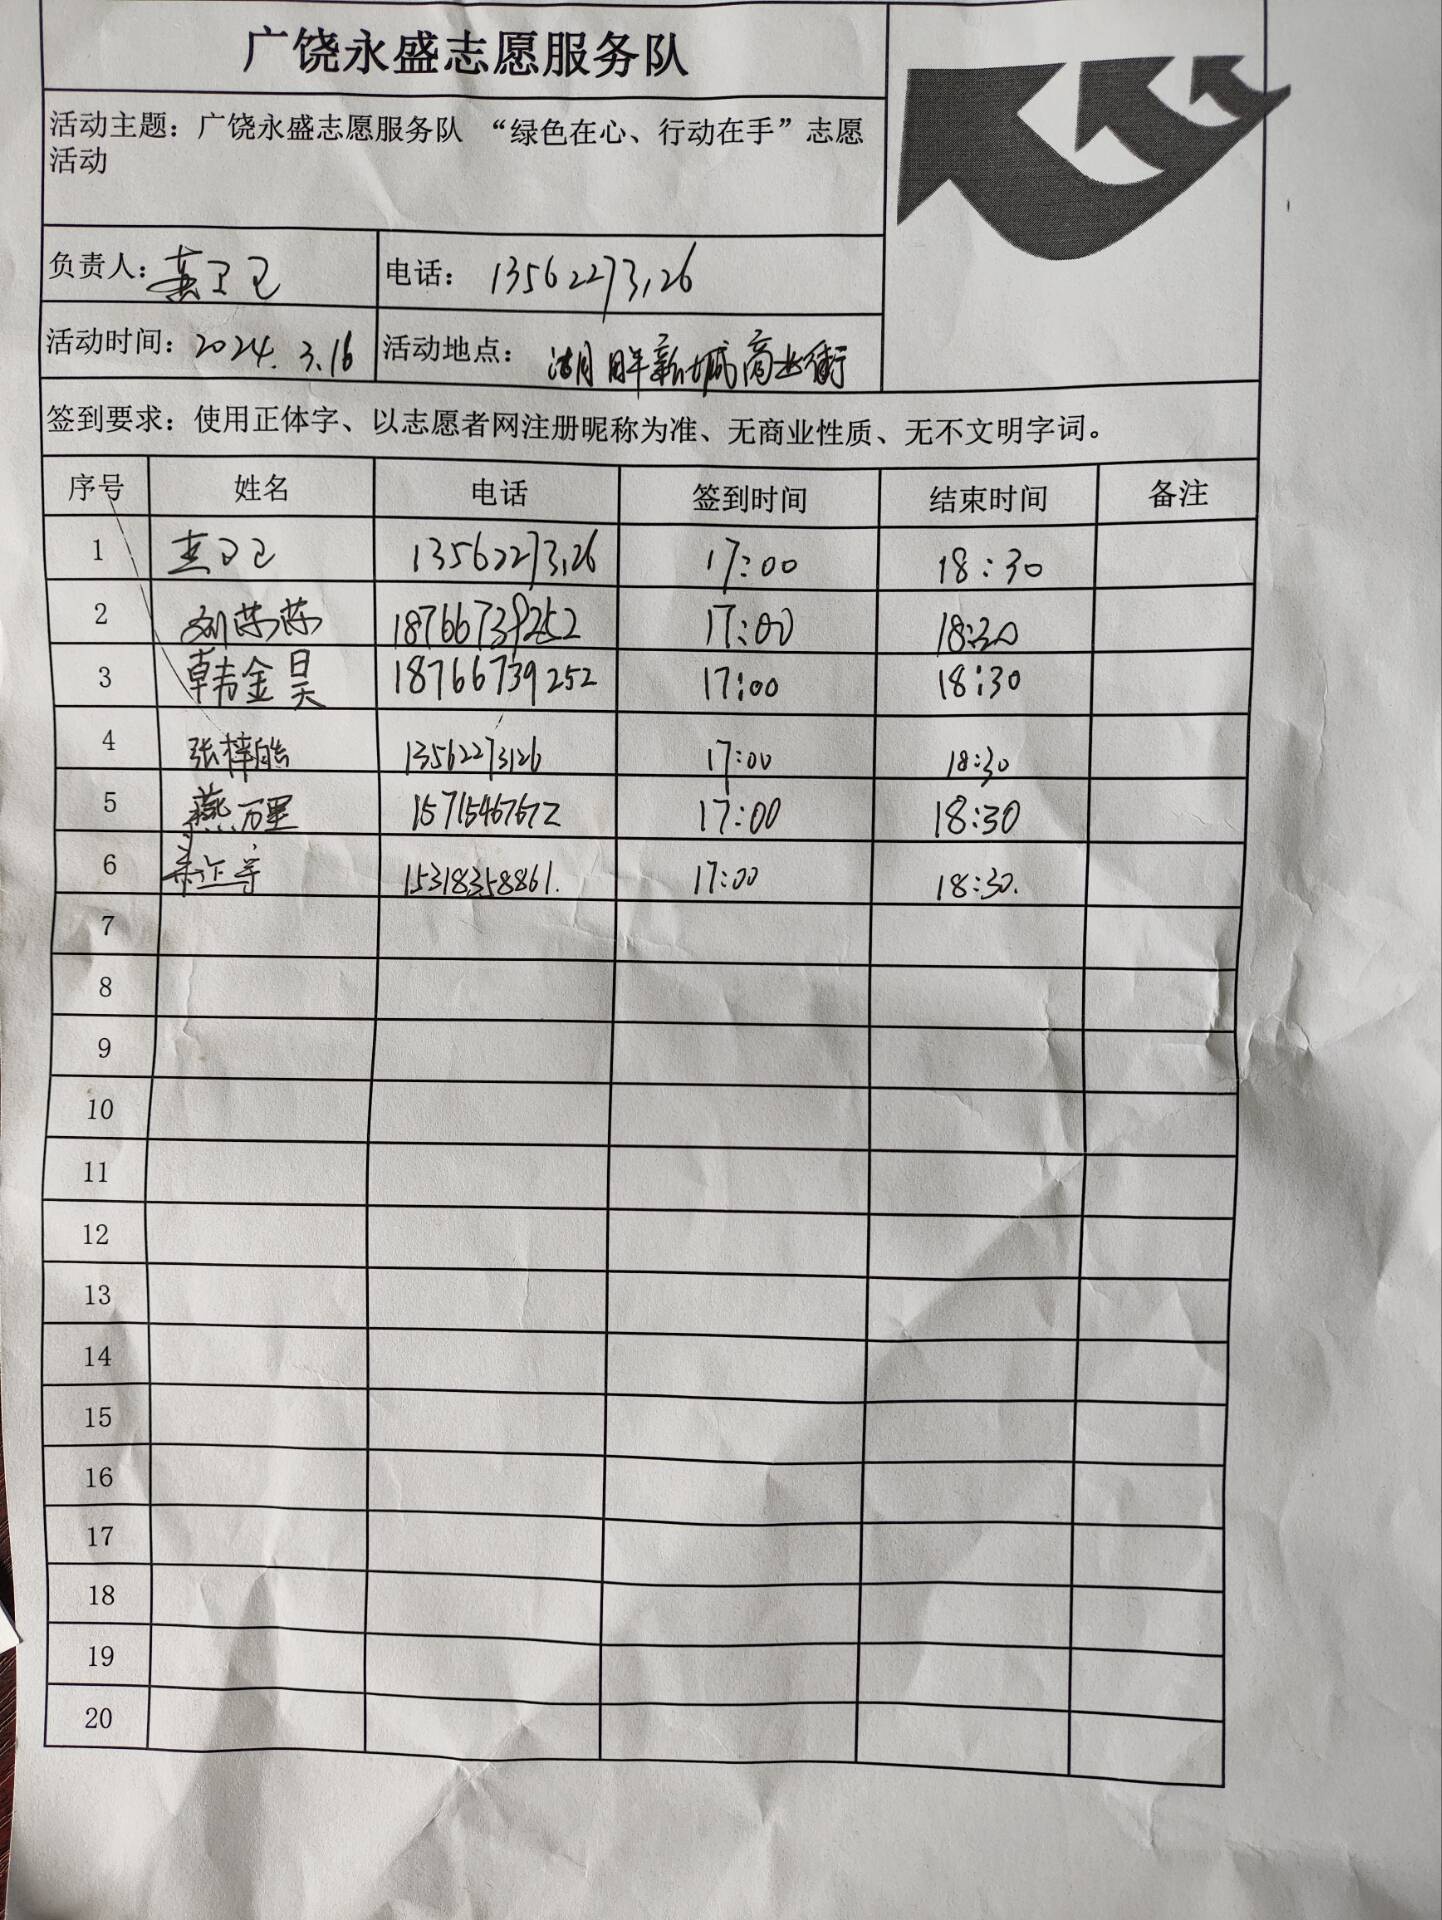 广饶永盛志愿服务队
活动主题：广饶永盛志愿服务队 “绿色在心、行动在手”志愿
活动
负责人： 电话： 13562273126
活动时间：2024.3.16 活动地点： 湖畔新城商业街
签到要求：使用正体字、以志愿者网注册昵称为准、无商业性质、无不文明字词。
序号 姓名 电话 签到时间 结束时间 备注
1 13562273126 17:00 18:30
2 刘芬芬 18766739252 17:00 18:30
3 韩金昊 18766739252 17:00 18:30
4 张梓皓 13562273126 17:00 18:30
5 燕万里 15715467672 17:00 18:30
6 15318358861. 17:00 18:30.
7
8
9
10
11
12
13
14
15
16
17
18
19
20